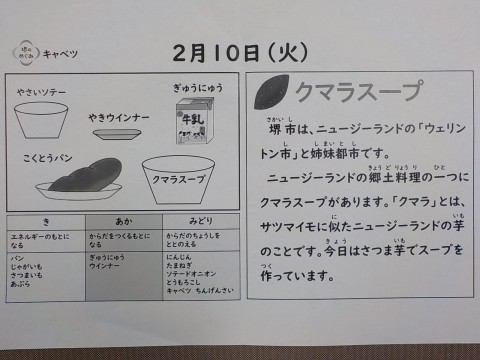 堺のめぐみ キャベツ
2月10日(火)
やさいソテー
ぎゅうにゅう
牛乳
やきウインナー
こくとうパン
クマラスープ
き あか みどり
エネルギーのもとになる からだをつくるもとになる からだのちょうしをととのえる
パン ぎゅうにゅう にんじん
じゃがいも ウインナー たまねぎ
さつまいも ソテードオニオン
あぶら とうもろこし
キャベツ ちんげんさい
クマラスープ
さかい し
堺市は、ニュージーランドの「ウェリン
し し まい と し
トン市」と姉妹都市です。
きょう ど りょう り ひと
ニュージーランドの郷土料理の一つに
クマラスープがあります。「クマラ」とは、
に いも
サツマイモに似たニュージーランドの芋
きょう いも
のことです。今日はさつま芋でスープを
つく
作っています。